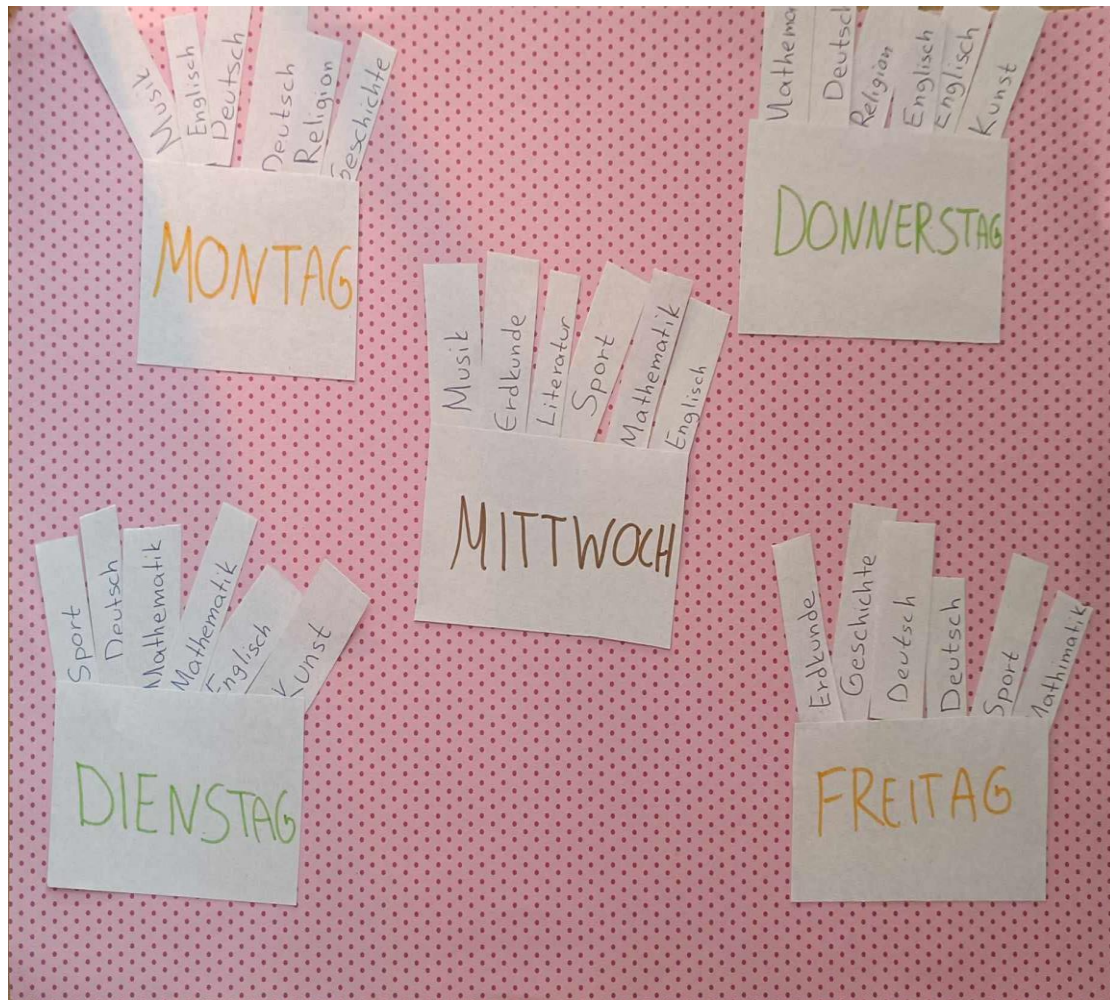 Musik
Englisch
Deutsch
Deutsch
Religion
Geschichte
MONTAG
Mathema
Deutsch
Religion
Englisch
Englisch
Kunst
DONNERSTAG
Musik
Erdkunde
Literatur
Sport
Mathematik
Englisch
MITTWOCH
Sport
Deutsch
Mathematik
Mathematik
Englisch
Kunst
DIENSTAG
Erdkunde
Geschichte
Deutsch
Deutsch
Sport
Mathimatik
FREITAG